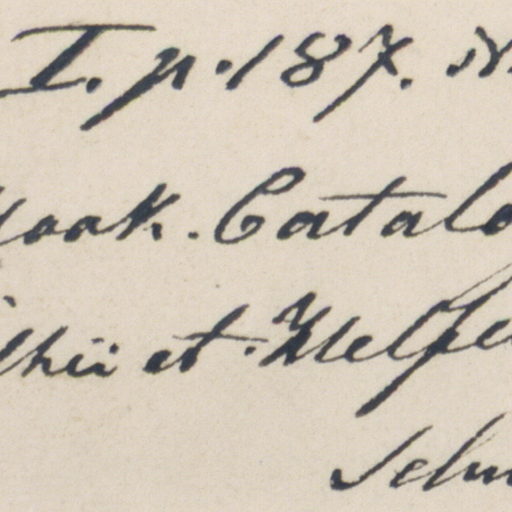 I. p. 187. N
Hook. Catalo
thii et Helfe
Selm